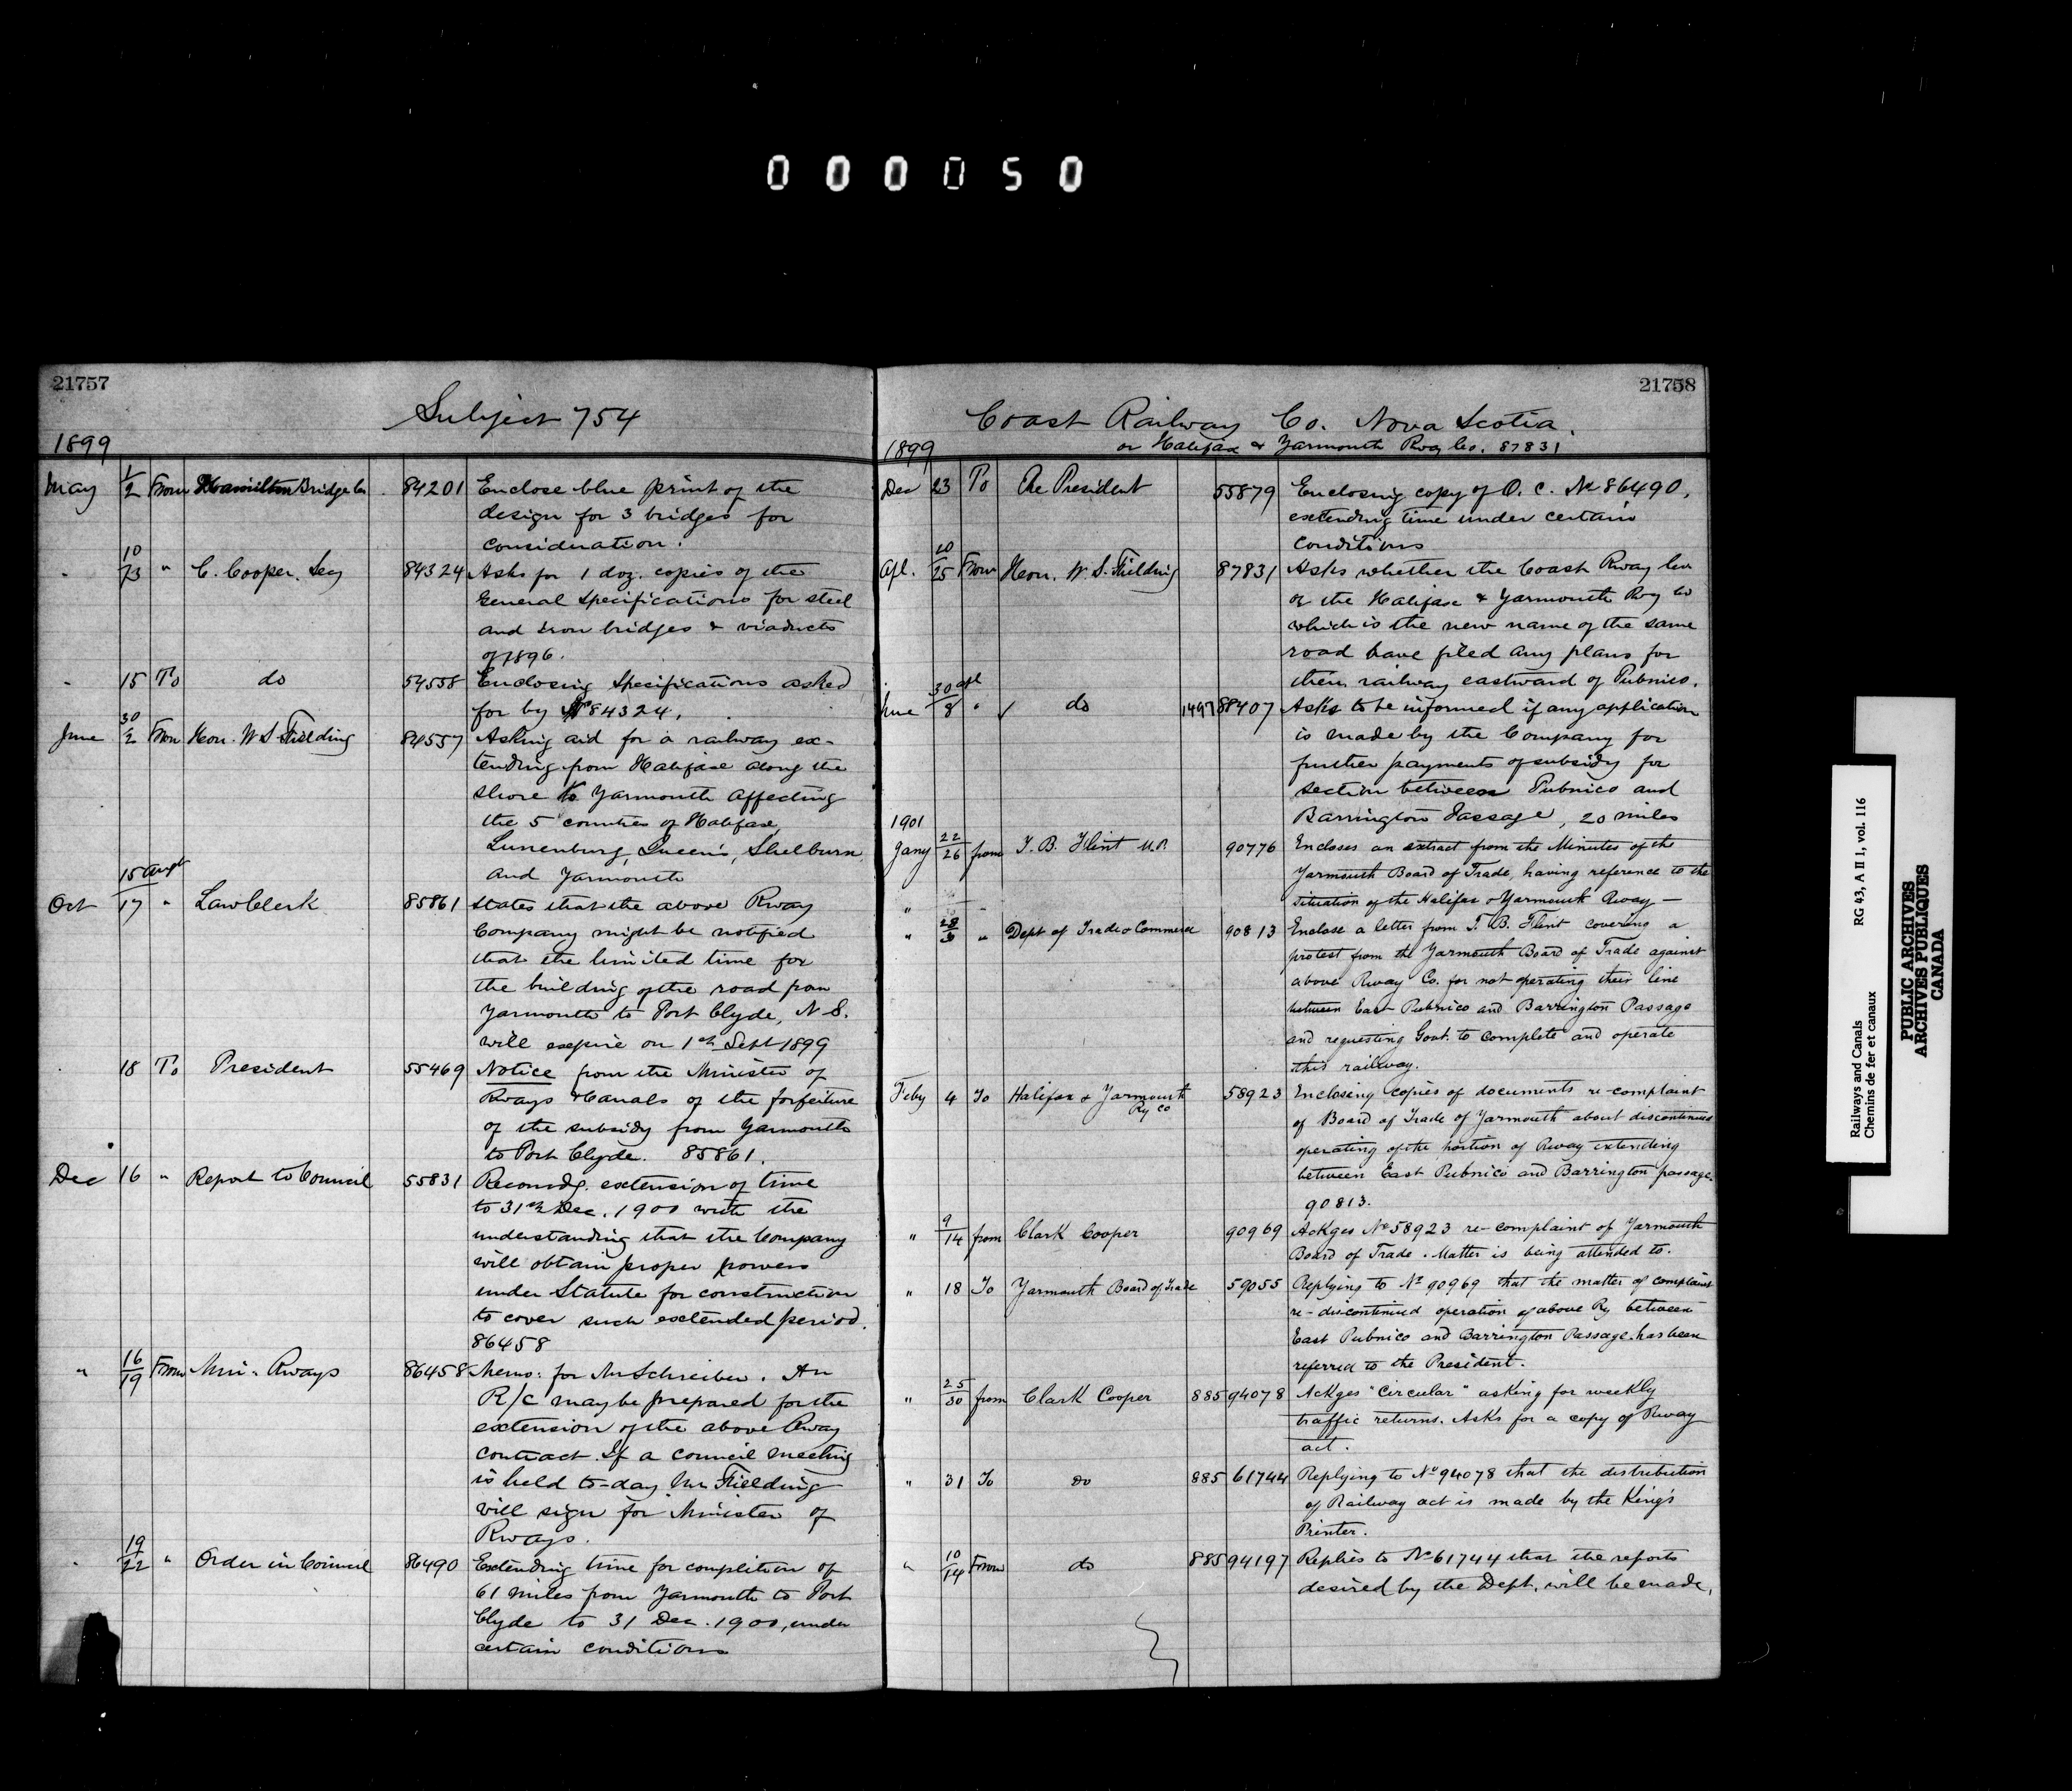 000050
21757
Subject 754
1899
May 1/2 From Hamilton Bridge Co 84201 Enclose blue print of the
design for 3 bridges for
consideration.
" 10/13 " C. Cooper. Secy 84324 Asks for 1 doz. copies of the
General Specifications for steel
and iron bridges & viaducts
of 1896.
" 15 To do 54558 Enclosing Specifications asked
for by No 84324.
June 30/2 From Hon. W S Fielding 84557 Asking aid for a railway ex-
tending from Halifax along the
shore to Yarmouth affecting
the 5 counties of Halifax,
Lunenburg, Queen's, Shelburn
and Yarmouth
Oct 15 Augt/17 " Law Clerk 85861 States that the above Rway
Company might be notified
that the limited time for
the building of the road from
Yarmouth to Port Clyde, N S.
will expire on 1st Sept 1899
" 18 To President 55469 Notice from the Minister of
Rways & Canals of the forfeiture
of the subsidy from Yarmouth
to Port Clyde. 85861.
Dec 16 " Report to Council 55831 Recomdg. extension of time
to 31st Dec. 1900 with the
understanding that the Company
will obtain proper powers
under Statute for construction
to cover such extended period.
86458
" 16/19 From Min. Rways 86458 Memo: for Mr Schreiber. An
R/C may be prepared for the
extension of the above Rway
contract. If a council meeting
is held to-day Mr Fielding
will sign for Minister of
Rways.
" 19/22 " Order in Council 86490 Extending time for completion of
61 miles from Yarmouth to Port
Clyde to 31 Dec. 1900, under
certain conditions
21758
Coast Railway Co. Nova Scotia.
or Halifax & Yarmouth Rwy Co. 87831
1899
Dec 23 To The President 55879 Enclosing copy of O. C. No 86490,
extending time under certain
conditions
Apl. 20/25 From Hon. W. S. Fielding 87831 Asks whether the Coast Rway Co
or the Halifax & Yarmouth Rwy Co
which is the new name of the same
road have filed any plans for
their railway eastward of Pubnico.
June 30 apl/8 " ✓ do 1497 88407 Asks to be informed if any application
is made by the Company for
further payments of subsidy for
section between Pubnico and
Barrington Passage, 20 miles
1901
Jany 22/26 from T. B. Flint M.P. 90776 Encloses an extract from the Minutes of the
Yarmouth Board of Trade, having reference to the
situation of the Halifax & Yarmouth Rway —
"
" 28/ " Dept of Trade & Commerce 90813 Enclose a letter from T. B. Flint covering a
protest from the Yarmouth Board of Trade against
above Rway Co. for not operating their line
between East Pubnico and Barrington Passage
and requesting Govt. to complete and operate
this railway.
Feby 4 To Halifax & Yarmouth
Ry Co 58923 Enclosing copies of documents re-complaint
of Board of Trade of Yarmouth about discontinued
operating of the portion of Rway extending
between East Pubnico and Barrington passage.
90813.
" 9/14 from Clark Cooper 90969 Ackges No 58923 re-complaint of Yarmouth
Board of Trade. Matter is being attended to.
" 18 To Yarmouth Board of Trade 59055 Replying to No 90969 that the matter of complaint
re-discontinued operation of above Ry between
East Pubnico and Barrington Passage has been
referred to the President.
" 25/30 from Clark Cooper 885 94078 Ackges "Circular" asking for weekly
traffic returns. Asks for a copy of Rway
act.
" 31 To do 885 61744 Replying to No 94078 that the distribution
of Railway act is made by the King's
Printer.
" 10/14 From do 885 94197 Replies to No 61744 that the reports
desired by the Dept. will be made.
Railways and Canals RG 43, A II 1, vol. 116
Chemins de fer et canaux
PUBLIC ARCHIVES
ARCHIVES PUBLIQUES
CANADA